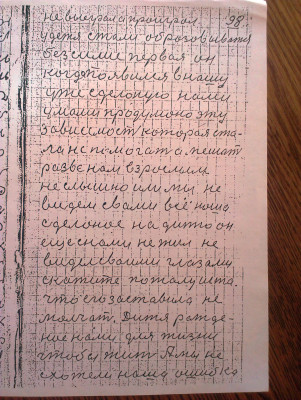 не выиграл а проиграл. 98.
у детя стали образовыватся
безсилие первая он
когда появился в нашу
уже сделоную нами
умами продумоно эту
зависимост которая ста-
ла не помогат а мешат
разве нам взрослим
не слышно или мы не
видем свами всё наша
сделоное на дитю он
еще с нами не жил не
видел своими глазами
скажите пожалуиста
что его заставила не
молчат. Дитя рожде-
ное нами для жизни
чтобы жит А мы не
схотели наша ошибка